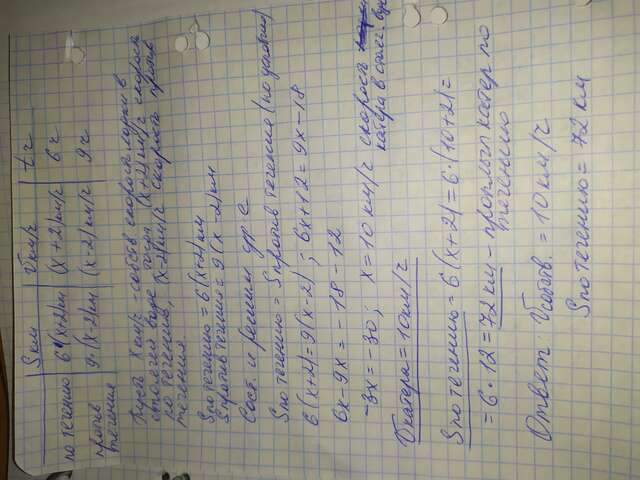 S км | V км/ч | t ч
по течению | 6(х+2)км | (х+2)км/ч | 6 ч
против течения | 9·(х-2)км | (х-2)км/ч | 9 ч
Пусть х км/ч - собств скорость лодки в
тогда (х+2) км/ч скорость
по течению, (х-2)км/ч скорость против
течения.
S по течению = 6(х+2)км
S против течения = 9(х-2)км
Сост. и решим ур-е
S по течению = S против течения (по условию)
6(х+2)=9(х-2); 6х+12=9х-18
6х-9х=-18-12
-3х=-30; х=10 км/ч скорость
катера в
Vкатера=10км/ч
S по течению=6(х+2)=6·(10+2)=
=6·12=72км - проплыл катер по
течению
Ответ: Vсобств.=10км/ч
S по течению=72км